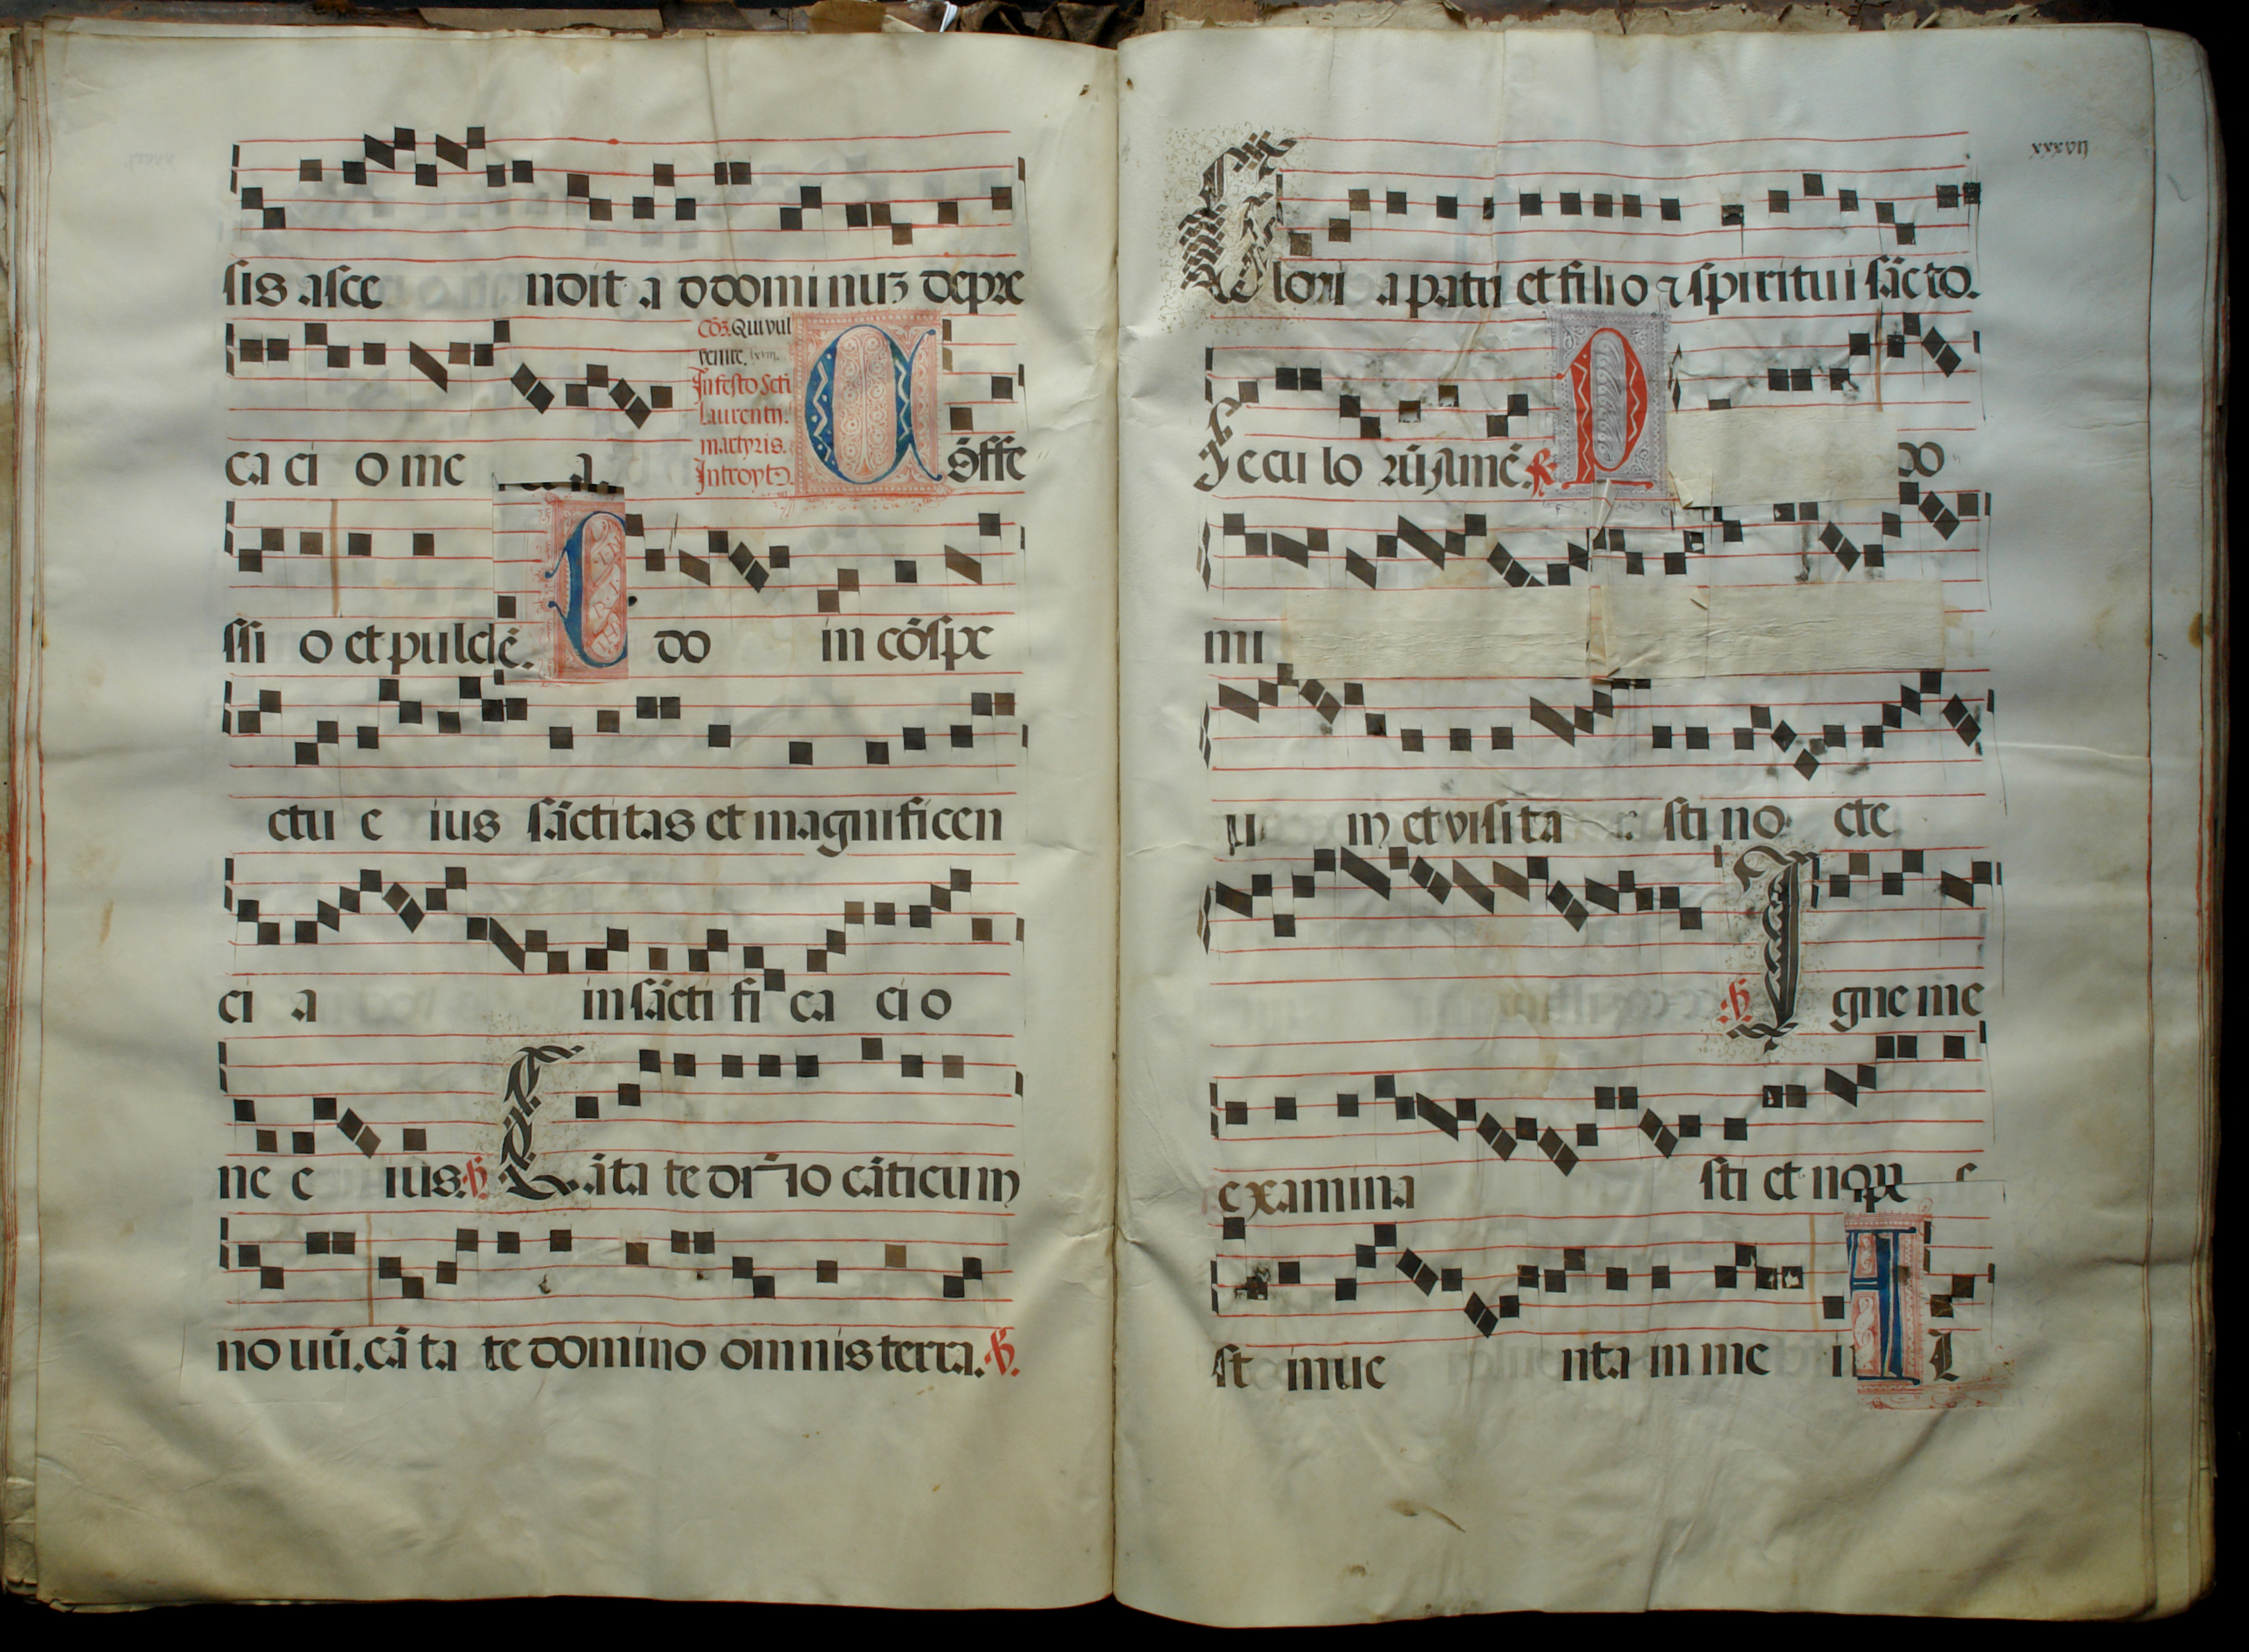 sis asce ndit a d domi nuʒ depre
ca ci o me a.
Cōʒ. Qui vul
venire. lxviij.
In festo Scti
Laurentij.
martyris.
Introytꝰ.
C ōffe
ssi o et pulchē. C do in cōspe
ctu e ius sāctitas et magnificen
ci a in sācti fi ca ci o
ne e ius. ℣. Cāta te dn̄o cāticum
nouū. cāta te domino omnis terra. ℣.
xxxvij
Glori a patri et filio ⁊ spiritui sācto.
Seculo rū amē. ℟. P do
mi
m et visita sti no cte
℣. I gne me
examina sti et non e
st inue nta in me in I